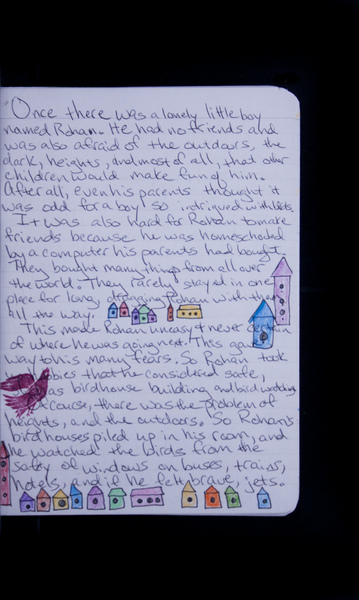 Once there was a lonely little boy
named Rohan. He had no friends and
was also afraid of the outdoors, the
dark, heights, and most of all, that other
children would make fun of him.
After all, even his parents thought it
was odd for a boy so intrigued with
It was also hard for Rohan to make
friends because he was homeschooled
by a computer his parents had bought.
They bought many things from all over
the world. They rarely stayed in one
place for long dragging Rohan with them
all the way.
This made Rohan uneasy & never certain
of where he was going next. This gave
way to his many fears. So Rohan took
that he considered safe,
as birdhouse building and bird watching.
course, there was the problem of
heights, and the outdoors. So Rohan's
birdhouses piled up in his room, and
he watched the birds from the
safety of windows on buses, trains,
hotels, and if he felt brave, jets.